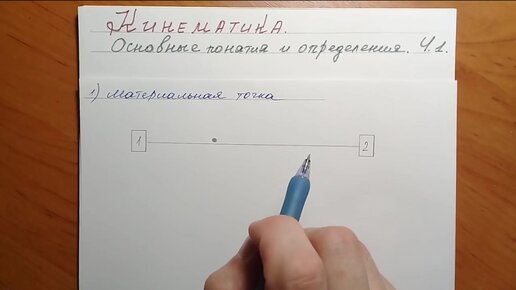 Кинематика.
Основные понятия и определения. Ч.1.
1) Материальная точка
1 2